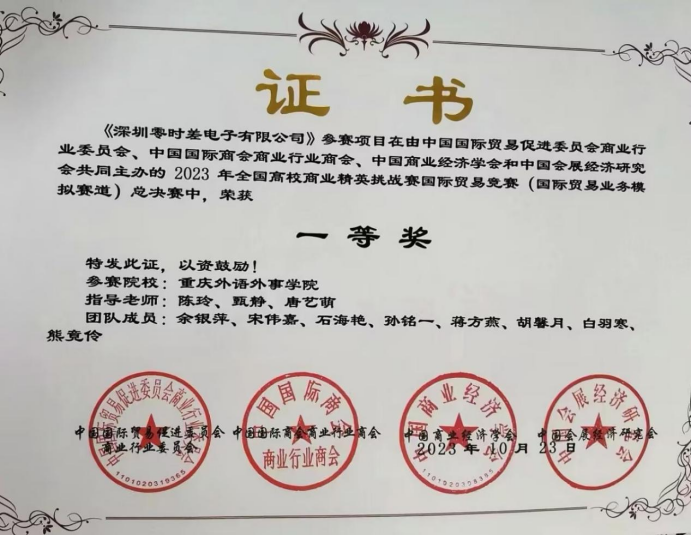 证 书
《深圳零时差电子有限公司》参赛项目在由中国国际贸易促进委员会商业行
业委员会、中国国际商会商业行业商会、中国商业经济学会和中国会展经济研究
会共同主办的 2023 年全国高校商业精英挑战赛国际贸易竞赛（国际贸易业务模
拟赛道）总决赛中，荣获
一 等 奖
特发此证，以资鼓励！
参赛院校：重庆外语外事学院
指导老师：陈玲、甄静、唐艺萌
团队成员：余银萍、宋伟嘉、石海艳、孙铭一、蒋方燕、胡馨月、白羽寒、
熊竞伶
中国国际贸易促进委员会商业行业委员会
中国国际商会
中国商业经济学会
中国会展经济研究会
中国国际贸易促进委员会 中国国际商会商业行业商会 中国商业经济学会 中国会展经济研究会
商业行业委员会
商业行业商会
2023 年 10 月 23 日
1101020319365